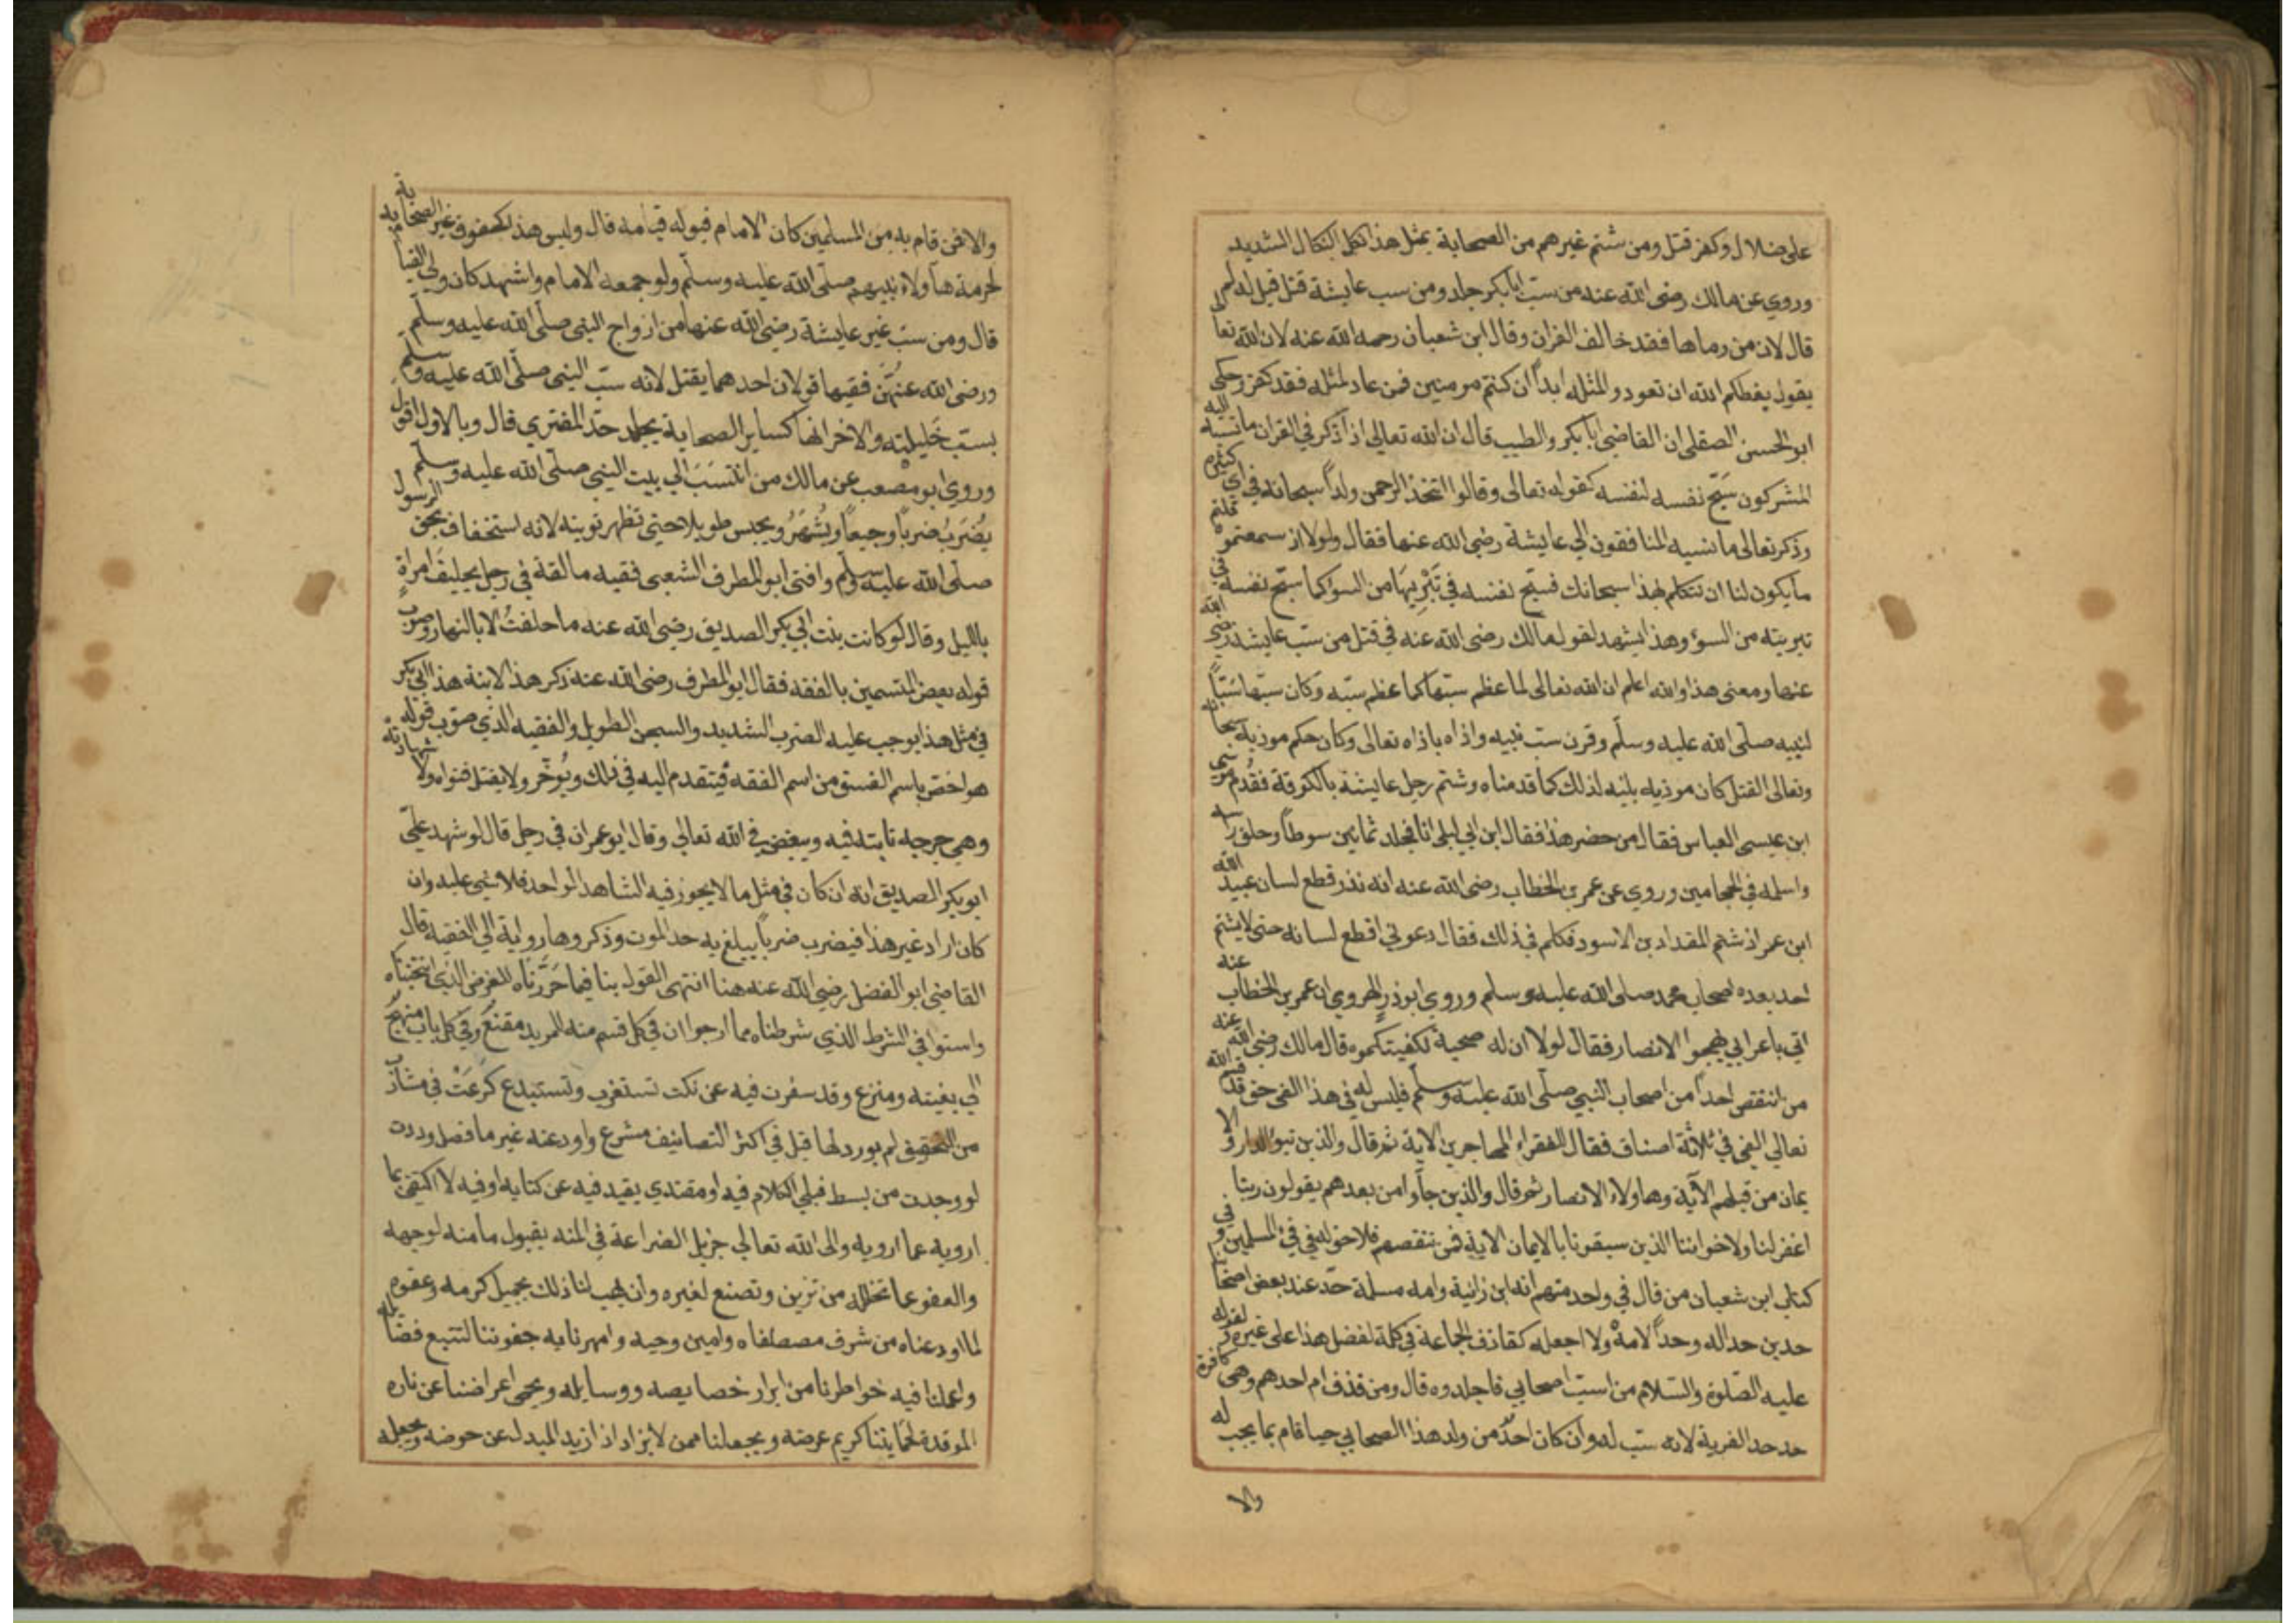 على ضلال وكفر قتل ومن شتم غيرهم من الصحابة بمثل هذا نكل النكال الشديد
وروي عن مالك رضى الله عنه من سب أبا بكر جلد ومن سب عايشة قتل قيل له لم
قال لان من رماها فقد خالف القران وقال ابن شعبان رحمه الله عنه لان الله تعالى
يقول يعظكم الله ان تعودوا لمثله ابداً ان كنتم مومنين فمن عاد لمثله فقد كفر وحكى
ابو الحسن الصقلى ان القاضي أبا بكر والطيب قال ان الله تعالى اذا ذكر في القران ما نسبه اليه
المشركون سبّح نفسه لنفسه كقوله تعالى وقالوا اتخذ الرحمن ولداً سبحانه في اى كثيرة
وذكر تعالى ما نسبه المنافقون الي عايشة رضى الله عنها فقال ولولا اذ سمعتموه قلتم
ما يكون لنا ان نتكلم بهذا سبحانك فسبّح نفسه في تَبْرِيهَا من السوا كما سبّح نفسه في
تبريته من السوء وهذا يشهد لقول مالك رضى الله عنه في قتل من سبّ عايشة رضي الله
عنها ومعنى هذا والله اعلم ان الله تعالى لما عظم سبّها كما عظم سبّه وكان سبّها سَبّاً
لنبيه صلّى الله عليه وسلّم وقرن سبّ نبيه واذاه باذاه تعالى وكان حكم موذيه سبحانه
وتعالى القتل كان موذيه بلنيه لذلك كما قدمناه وشتم رجل عايشة بالكوفة فقُدم موسى
ابن عيسى العباس فقال من حضر هذا فقال ابن ابي ليلى انا فجلد ثمانين سوطاً وحلق راسه
واسلمه في الحجامين وروي عن عمر بن الخطاب رضى الله عنه انه نذر قطع لسان عبيد الله
ابن عمر اذ شتم المقداد بن الاسود فكلم في ذلك فقال دعوني اقطع لسانه حتى لا يشتم
احد بعده اصحاب محمد صلى الله عليه وسلم وروي ابوذرٍ الهروي ان عمر بن الخطاب عنه
اتي باعرابي يهجوا الانصار فقال لولا ان له صحبة لكفيتكموه قال مالك رضى الله عنه
من انتقص احداً من اصحاب النبي صلّى الله عليه وسلّم فليس له في هذا الفى حق قد قسم الله
تعالي الفى في ثلاثة اصناف فقال للفقراء المهاجرين الاية ثم قال والذين تبوّ الدار والا
يمان من قبلهم الآية وهاولاء الانصار ثم قال والذين جآوا من بعدهم يقولون ربنا
اغفر لنا ولاخواننا الذين سبقونا بالايمان الاية فمن تنقصهم فلا حق له في فئ المسلمين وفي
كتاب ابن شعبان من قال في واحد منهم انه ابن زانية وامه مسلمة حدّ عند بعض اصحابنا
حدين حداً له وحداً لامهْ ولا اجعله كقاذف الجماعة في كلمة لفضل هذا على غيره ولقوله
عليه الصّلوة والسّلام من اسبّ اصحابي فاجلدوه قال ومن قذف ام احدهم وهى كافرة
حد حد الفرية لانه سبّ له وان كان احدٌ من ولد هذا الصحابي حيا قام بما يجب له
والا
والا فمن قام به من المسلمين كان الامام قبوله قيامه قال وليس هذا كحقوق غير الصحابة
لحرمة هآولاء بنبيهم صلّى الله عليه وسلّم ولو جمعه الامام واشهد كان ولي القيام به
قال ومن سبّ غير عايشة رضي الله عنها من ازواج النبي صلّى الله عليه وسلّم
ورضى الله عنهُنّ ففيها قولان احدهما يقتل لانه سبّ النبي صلّى الله عليه وسلّم
بسبّ حَليلته والاخر انها كساير الصحابة يجلد حدّ المفتري قال وبالاول اقول
وروي ابو مصعب عن مالك من انتسَبَ الي بيت النبي صلّى الله عليه وسلّم
يُضرَبُ ضرباً وجيعاً ويُشهَرُ ويحبس طويلا حتى تظهر توبته لانه استخفاف بحق الرسول
صلّى الله عليه وسلّم وافتى ابو المطرف الشعبى فقيه مالقة في رجل يحلِيفَ امراةٍ
بالليل وقال لو كانت بنت ابي بكر الصديق رضي الله عنه ما حلفتُ الا بالنهار وصوب
قوله بعض المتسمين بالفقه فقال ابو المطرف رضى الله عنه ذكر هذا لابنة هذا ابي بكر
في مثل هذا يوجب عليه الضرب الشديد والسجن الطويل والفقيه الذي صوّب قوله
هو اخصّ باسم الفسق من اسم الفقه فيتقدم اليه في ذلك ويُوخّر ولا يقبل فتواه ولا شهادته
وهي جرحه ثابته فيه ويبغض في الله تعالي وقال ابو عمران في رجل قال لو شهد علىّ
ابو بكر الصديق انه ان كان في مثل ما لا يجوز فيه الشاهد الواحد فلا شي عليه وان
كان اراد غير هذا فيضرب ضرباً يبلغ به حد الموت وذكروها رواية الي الفقيه قال
القاضي ابو الفضل رضي الله عنه هنا انتهى القول بنا فيما حَرّرناه للغرض الذي انتخبناه
واستوا في الشرط الذي شرطناه مما ارجوا ان في كل قسم منه للمريد مقنعٌ وفي كل باب منهج
الي بغيته ومنزع وقد سفرت فيه عن نكت تستغرب وتستبدع كرَعَتْ في مشارب
من التحقيق لم يورد لها قبل في اكثر التصانيف مشرع واودعته غير ما فصل وددت
لو وجدت من بسط قبلي الكلام فيه او مقتدي يفيدفيه عن كتابه او فيه لاكتفى بما
ارويه عما ارويه والى الله تعالي جزيل الضراعة في المنه بقبول ما منه لوجهه
والعفو عما تخلله من تزين وتصنع لغيره وان يهب لنا ذلك بجميل كرمه وعفوه
لما اودعناه من شرف مصطفاه وامين وحيه و اسهرنا به جفوننا لتتبع فضايله
واعملنا فيه خواطرنا من ابرار خصايصه ووسايله ويحمي اعراضنا عن ناره
الموقدة لحمايتنا كريم عرضه ويجعلنا ممن لا يزاد اذا زيد المبدل عن حوضه ويجعله